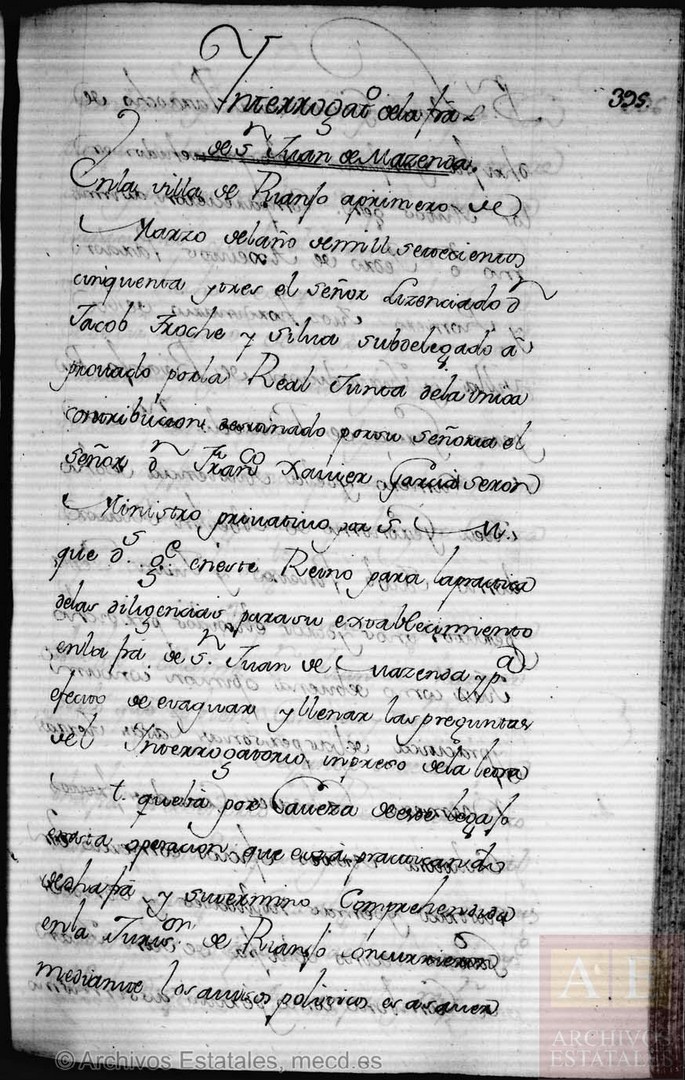 395.
Interrogatº dela fra
de Sn Juan de Mazenda.
Enla villa de Rianjo aprimero de
Marzo del año demill setecientos
cinquenta ytres el señor Lizenciado Dn
Jacob Froche y Silva subdelegado a
provado porla Real Junta dela Unica
contribucion destinado porsu señoria el
señor Dn Franco Xavier Garcia seron
Ministro privativo por S. M.
que Ds. ge eneste Reino para lapractica
delas diligencias, parasu extablecimiento
enla fra. de Sn. Juan de Mazenda y pa
efecto de evaquar yllenar las preguntas
del Interrogatorio impreso dela letra
t. queba por Caveza deeste legajo
enesta operacion que esta practicando
dedha fra y sutermino Comprehendida
enla Jurison. de Rianjo concurrieron
mediante los avisos politicos
© Archivos Estatales, mecd.es
ARCHIVOS
ESTATALES